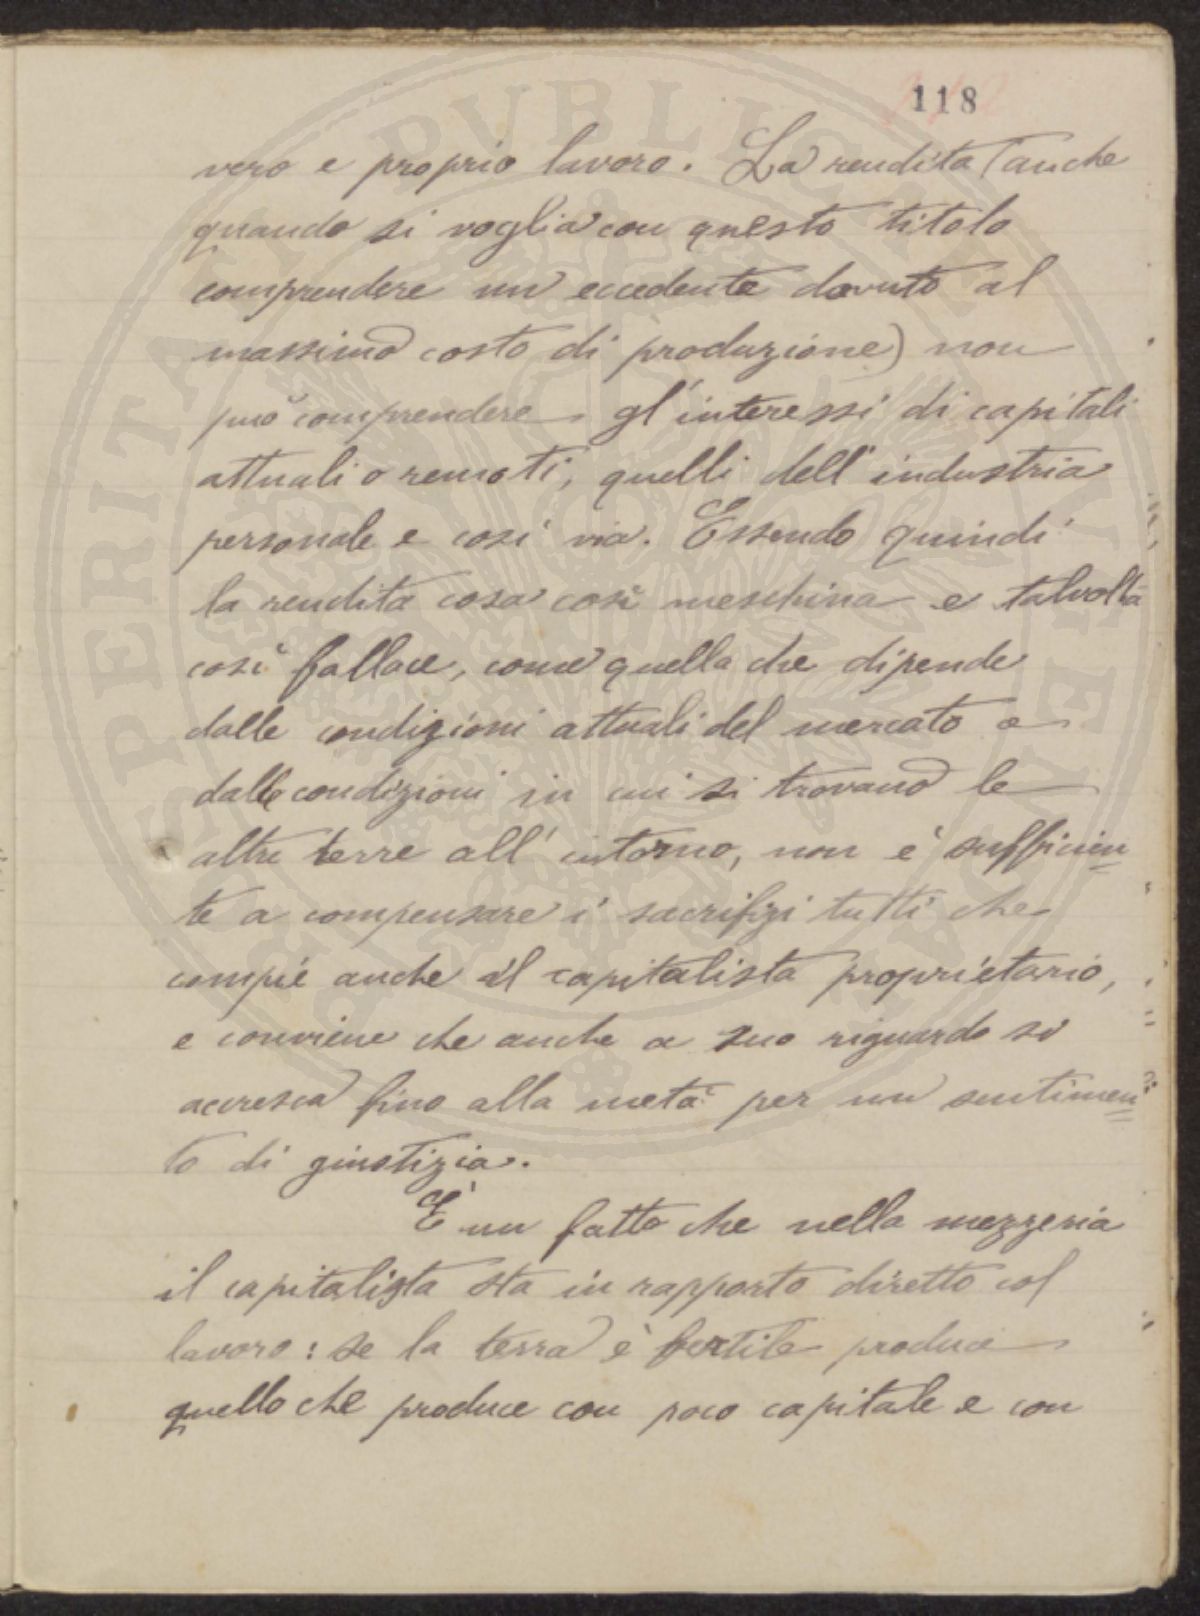 118
vero e proprio lavoro. La rendita (anche
quando si voglia con questo titolo
comprendere un eccedente dovuto al
massimo costo di produzione) non
può comprendere gl'interessi di capitali
attuali o remoti, quelli dell'industria
personale e così via. Essendo quindi
la rendita cosa così meschina e talvolta
così fallace, come quella che dipende
dalle condizioni attuali del mercato o
dalle condizioni in cui si trovano le
altre terre all'intorno, non è sufficien=
te a compensare i sacrifizi tutti che
compie anche il capitalista proprietario,
e conviene che anche a suo riguardo si
accresca fino alla metà per un sentimen=
to di giustizia.
È un fatto che nella mezzeria
il capitalista sta in rapporto diretto col
lavoro: se la terra è fertile produce
quello che produce con poco capitale e con